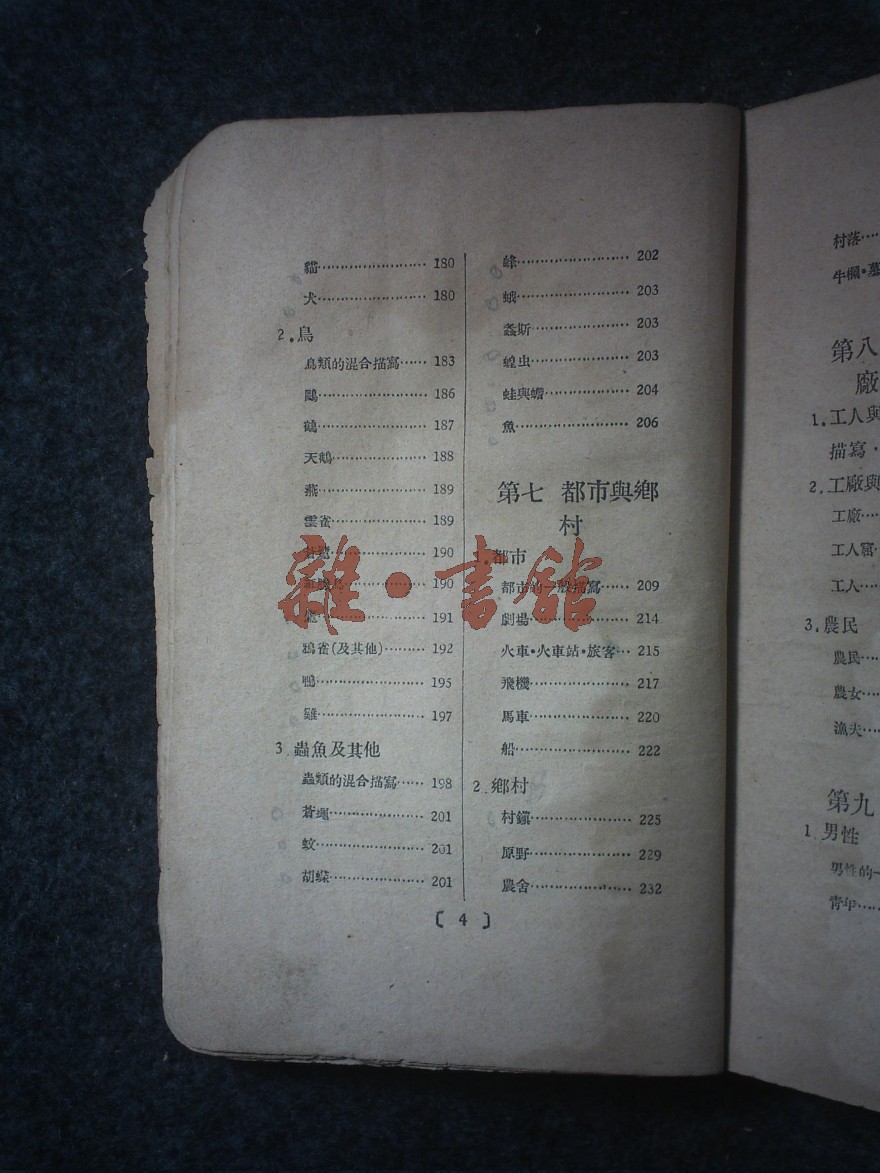 貓 180
犬 180
2.鳥
鳥類的混合描寫 183
鷗 186
鶴 187
天鵝 188
燕 189
雲雀 189
190
190
191
鴉雀(及其他) 192
鴨 195
雞 197
3 蟲魚及其他
蟲類的混合描寫 198
蒼蠅 201
蚊 201
胡蝶 201
蜂 202
蛾 203
螽斯 203
蝗虫 203
蛙與蟾 204
魚 206
第七 都市與鄉
村
1.都市
都市的一般描寫 209
劇場 214
火車·火車站·旅客 215
飛機 217
馬車 220
船 222
2.鄉村
村鎮 225
原野 229
農舍 232
〔 4 〕
村落
牛欄·墓
第八
廠
1.工人與
描寫
2.工廠與
工廠
工人窟
工人
3.農民
農民
農女
漁夫
第九
1.男性
男性的一
青年
雜·書館